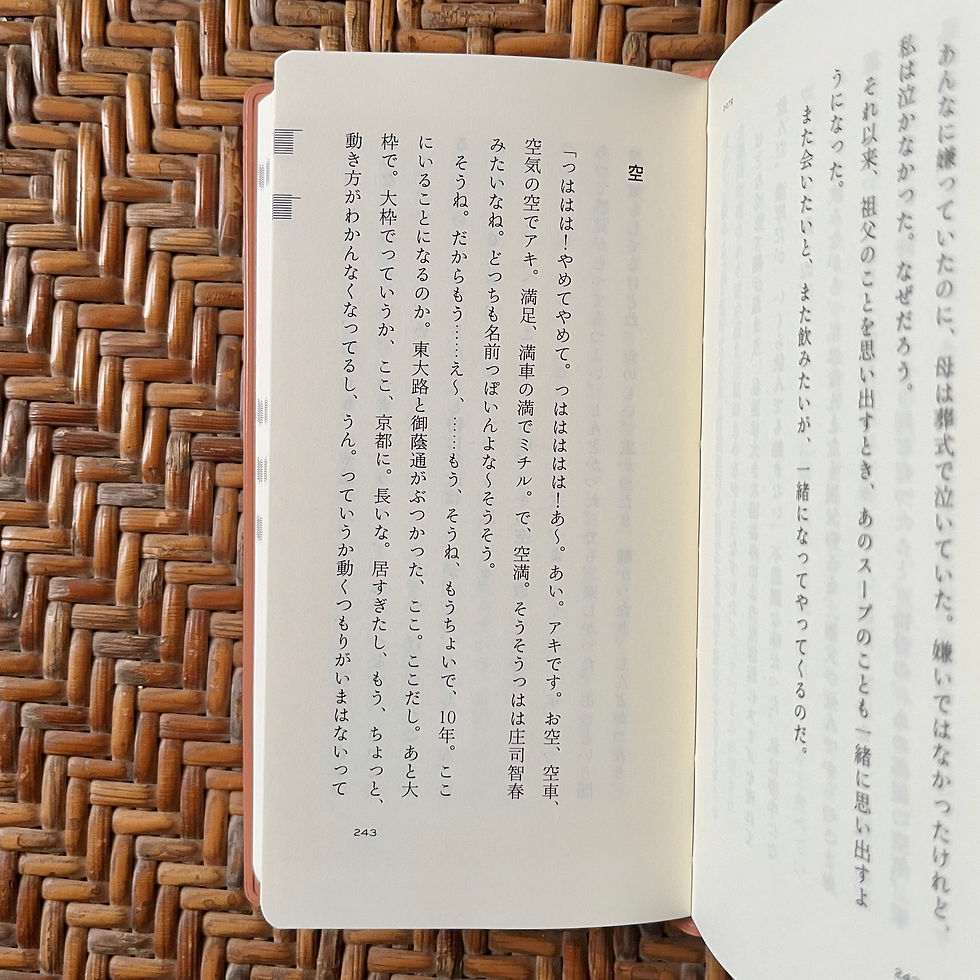 あんなに嫌っていたのに、母は葬式で泣いていた。嫌いではなかったけれど、
私は泣かなかった。なぜだろう。
それ以来、祖父のことを思い出すとき、あのスープのことも一緒に思い出すよ
うになった。
また会いたいと、また飲みたいが、一緒になってやってくるのだ。
空
「つははは!やめてやめて。つはははは!あ〜。あい。アキです。お空、空車、
空気の空でアキ。満足、満車の満でミチル。で、空満。そうそうつはは庄司智春
みたいなね。どっちも名前っぽいんよな〜そうそう。
そうね。だからもう……え〜、……もう、そうね、もうちょいで、10年。ここ
にいることになるのか。東大路と御蔭通がぶつかった、ここ。ここだし。あと大
枠で。大枠でっていうか、ここ、京都に。長いな。居すぎたし、もう、ちょっと、
動き方がわかんなくなってるし、うん。っていうか動くつもりがいまはないって
243